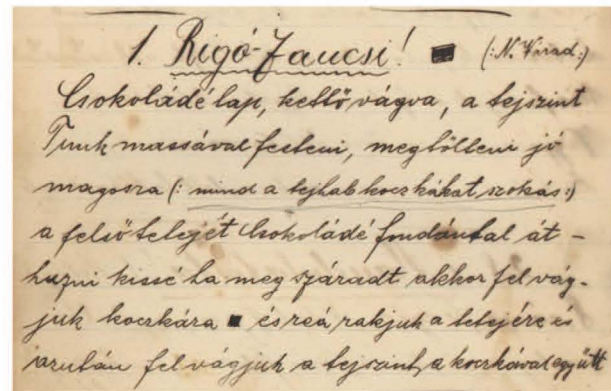 1. Rigó-Jancsi! (:N. Várad:)
Csokoládé lap, kettővágva, a tejszint
Tunk massával festeni, megtölteni jó
magosra (: mind a tejhab koczkákat szokás:)
a felső telejét Csokoládé fondántal át-
huzni kissé ha meg száradt akkor fel vág-
juk koczkára és reá rakjuk a tetejére és
azután felvágjuk a tejszint a koczkával együtt